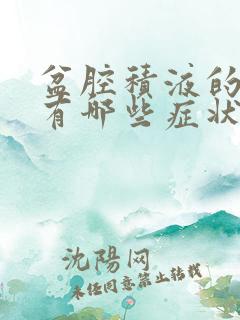 盆腔積液的
有哪些症狀
沈陽网
未经同意禁止转载